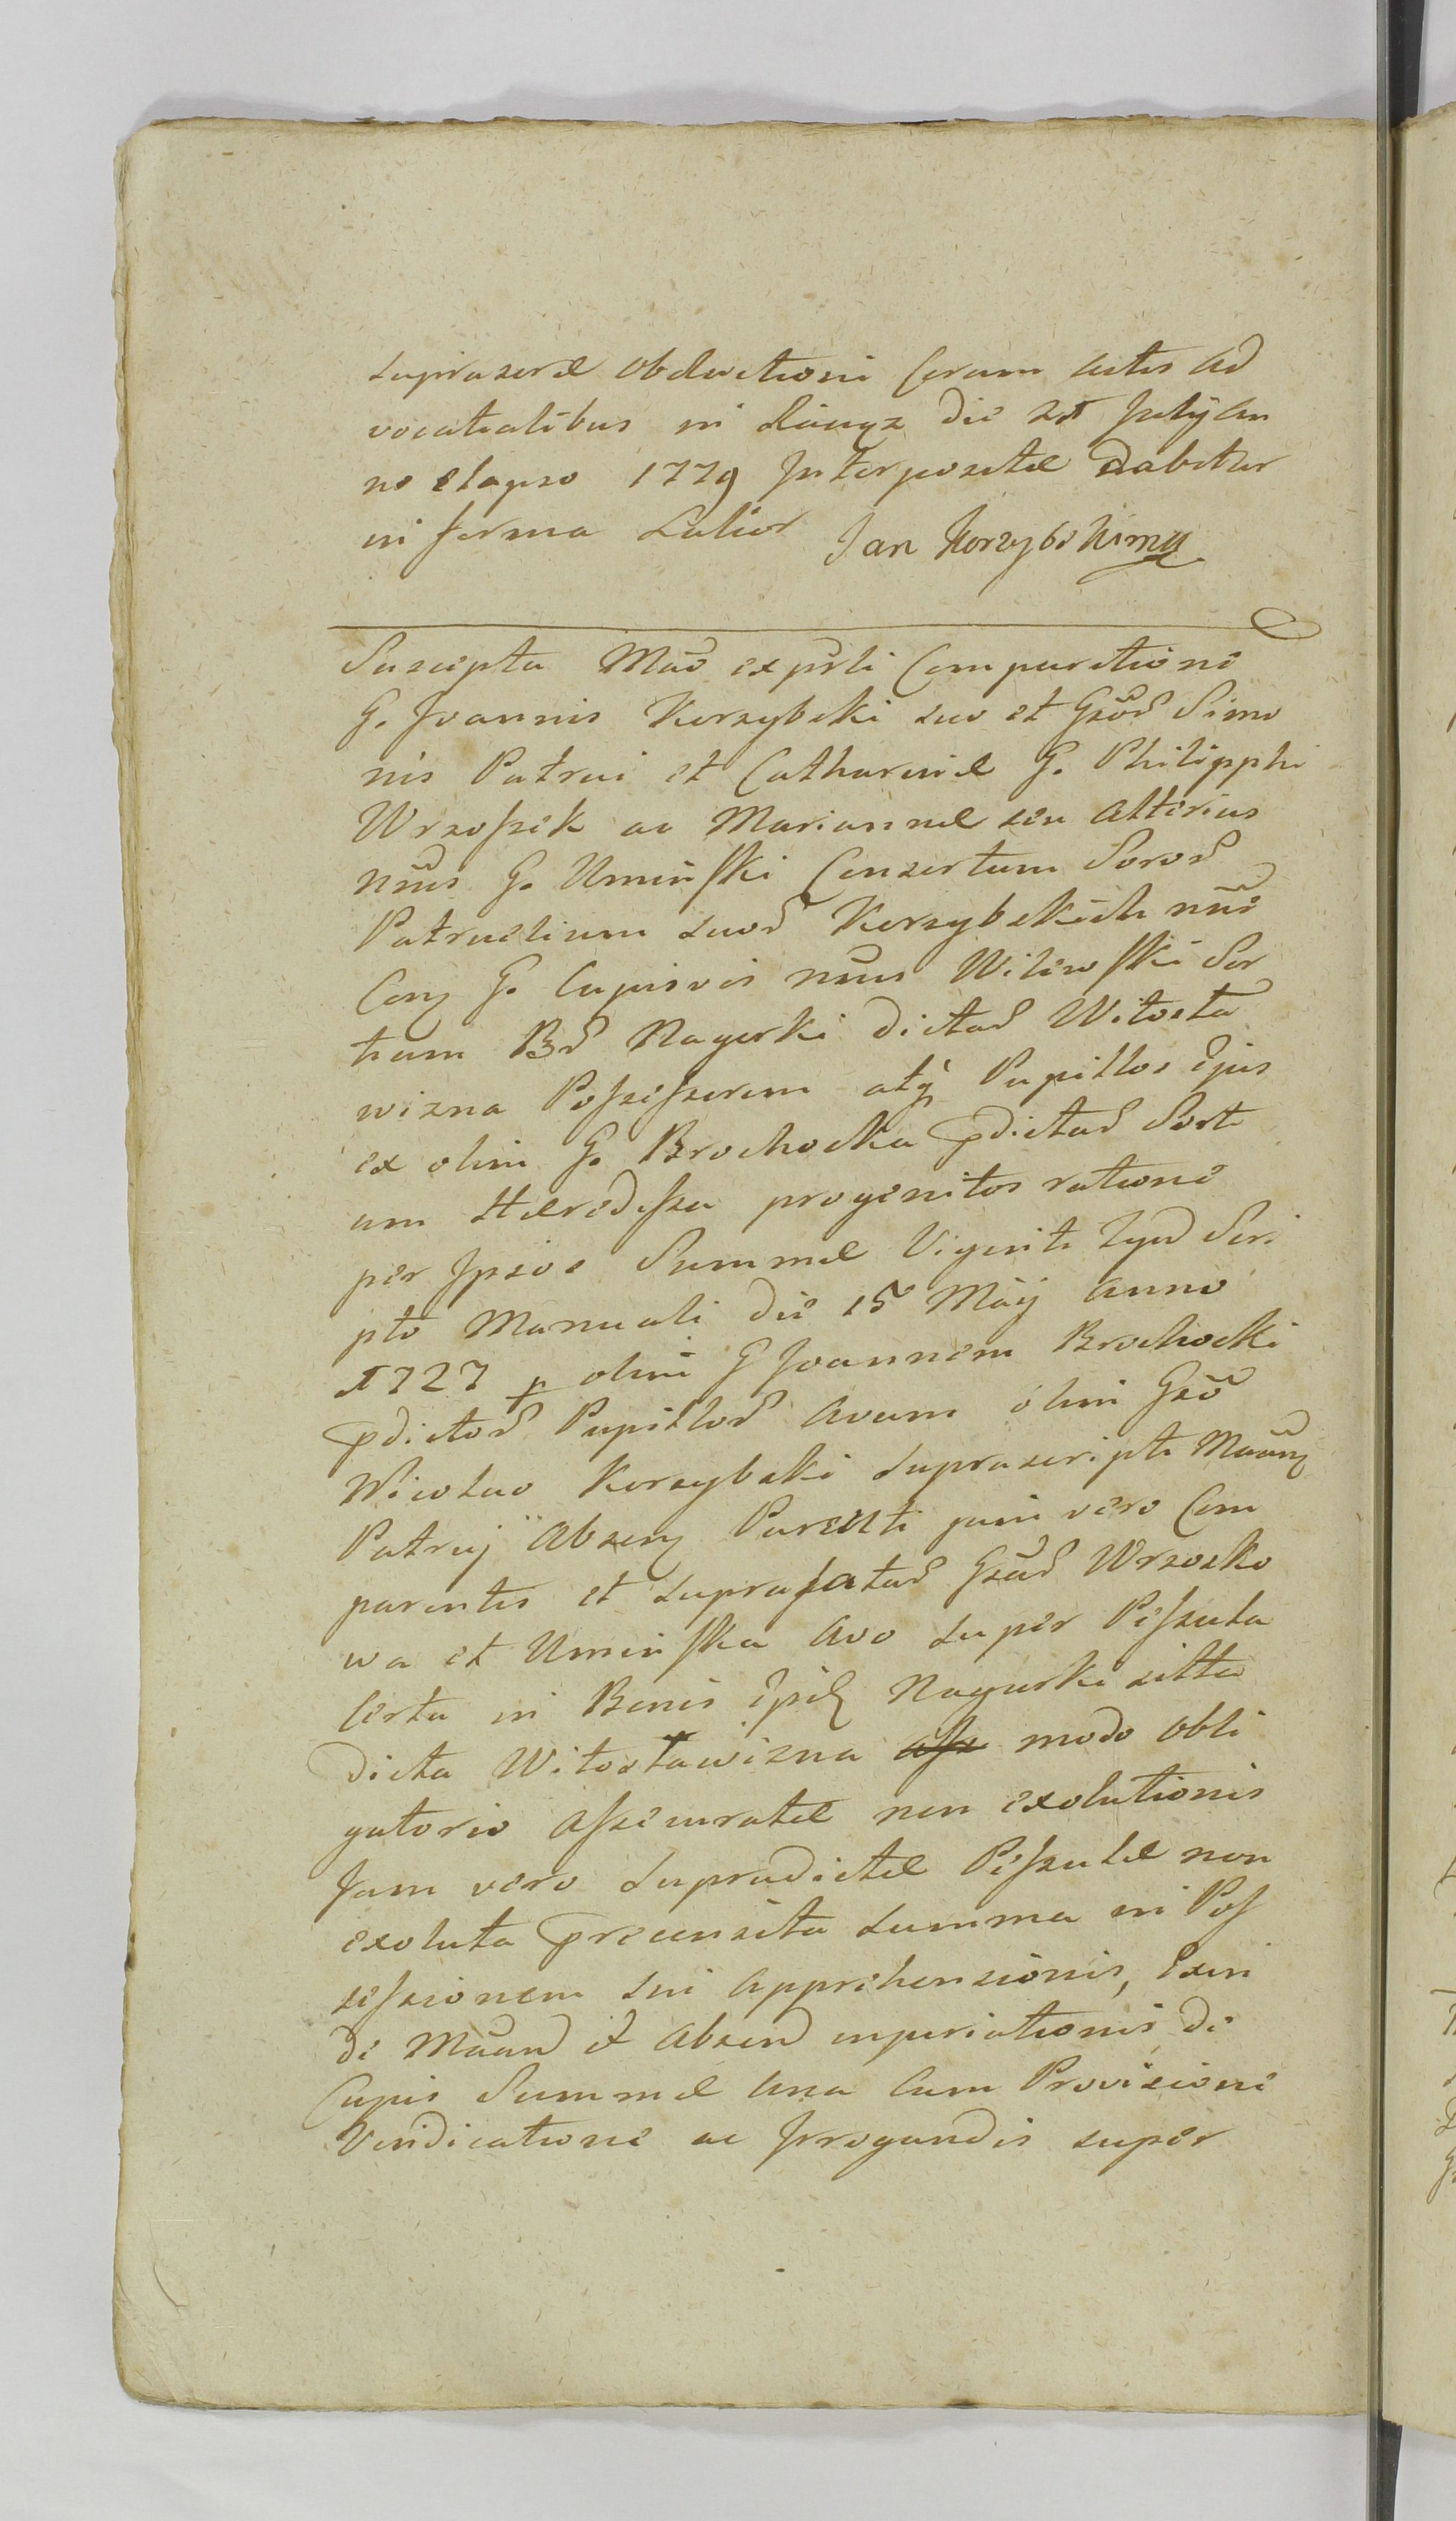 suprascrae oblactioni Coram actis ad
vocatialibus in die 21 Julij an
no elapso 1779 Interpositae dabitur
in forma Latior Jan Korzybski mp
Suscepta Mãõ expr̃ti Comparitione
G. Joannis Korzybski suo et Gsõr̃ Simo
nis Patrui et Catharinae G. Philipphi
Wrzoszek ac Mariannae seu alterius
nñis G. Uminski Consortum Soror̃
Patruelium suor̃ Korzybskich nñe
Conz G. Cujusvis nñis Wilewski Sor
tium Br̃ Nagorki dictar̃ Witosła
wizna Possessorem atq̃ Pupillos Ejus
ex olim G. Brochocka p̃dictar̃ Sorti
um Haeredissa progenitos ratione
per Ipsos Summae Viginti Scri
pto Manuali die 15 Maij anno
1727 p olim G Joannem Brochocki
p̃dictor̃ Pupillor̃ avum olim Gsõ
Nicolao Korzybski suprascripti Mãanz
Patruj absenz Parenti jam vero Com
parentis et suprafatar̃ Gsãr̃ Wrzosko
wa et Uminska avo super Peszuta
certa in Bonis Epilz Nagurki sitta
dicta Witosławizna modo obli
gatorio asse­curatae non exolutionis
Jam vero supradictae Peszutae non
exoluta precensita summa in Pos
sessionem sui apprehensionis, Exin
de Mãand et absend
Cujus Summae una cum Provisione
Vendicatione ac Irrogandis super